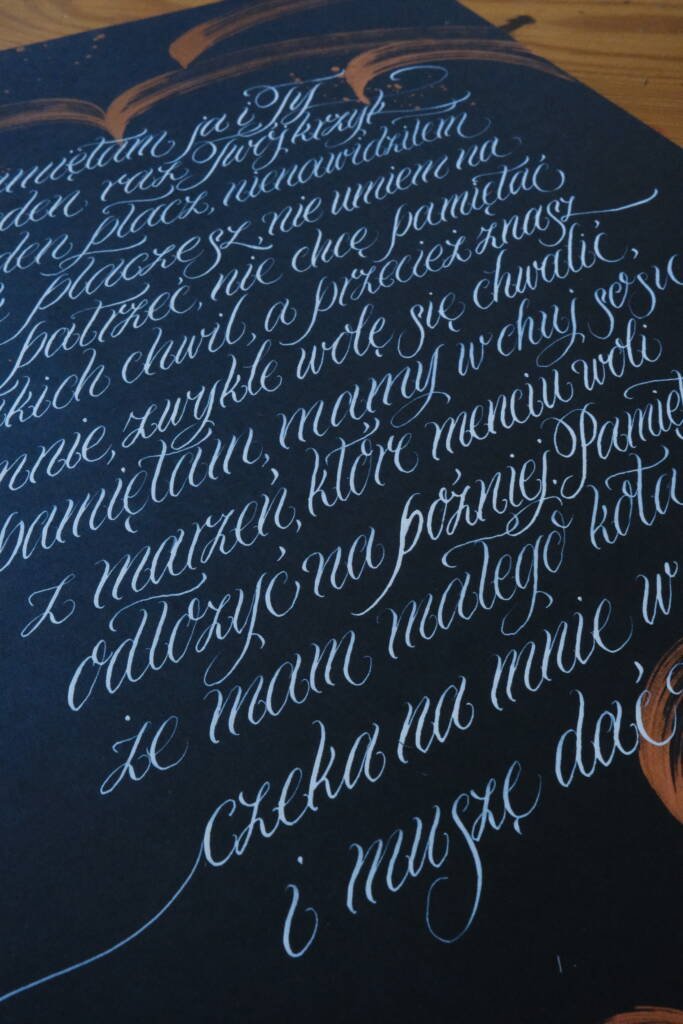 amiętam ja i Ty
den raz Twój krzyk
den płacz, nienawidziłem
płaczesz, nie umiem na
patrzeć, nie chcę pamiętać
kich chwil, a przecież znasz
mnie, zwykle wolę się chwalić,
pamiętam, mamy w chuj
z marzeń, które menciu woli
odłożyć na później. Pamięt
że mam małego kota
czeka na mnie w
i muszę dać